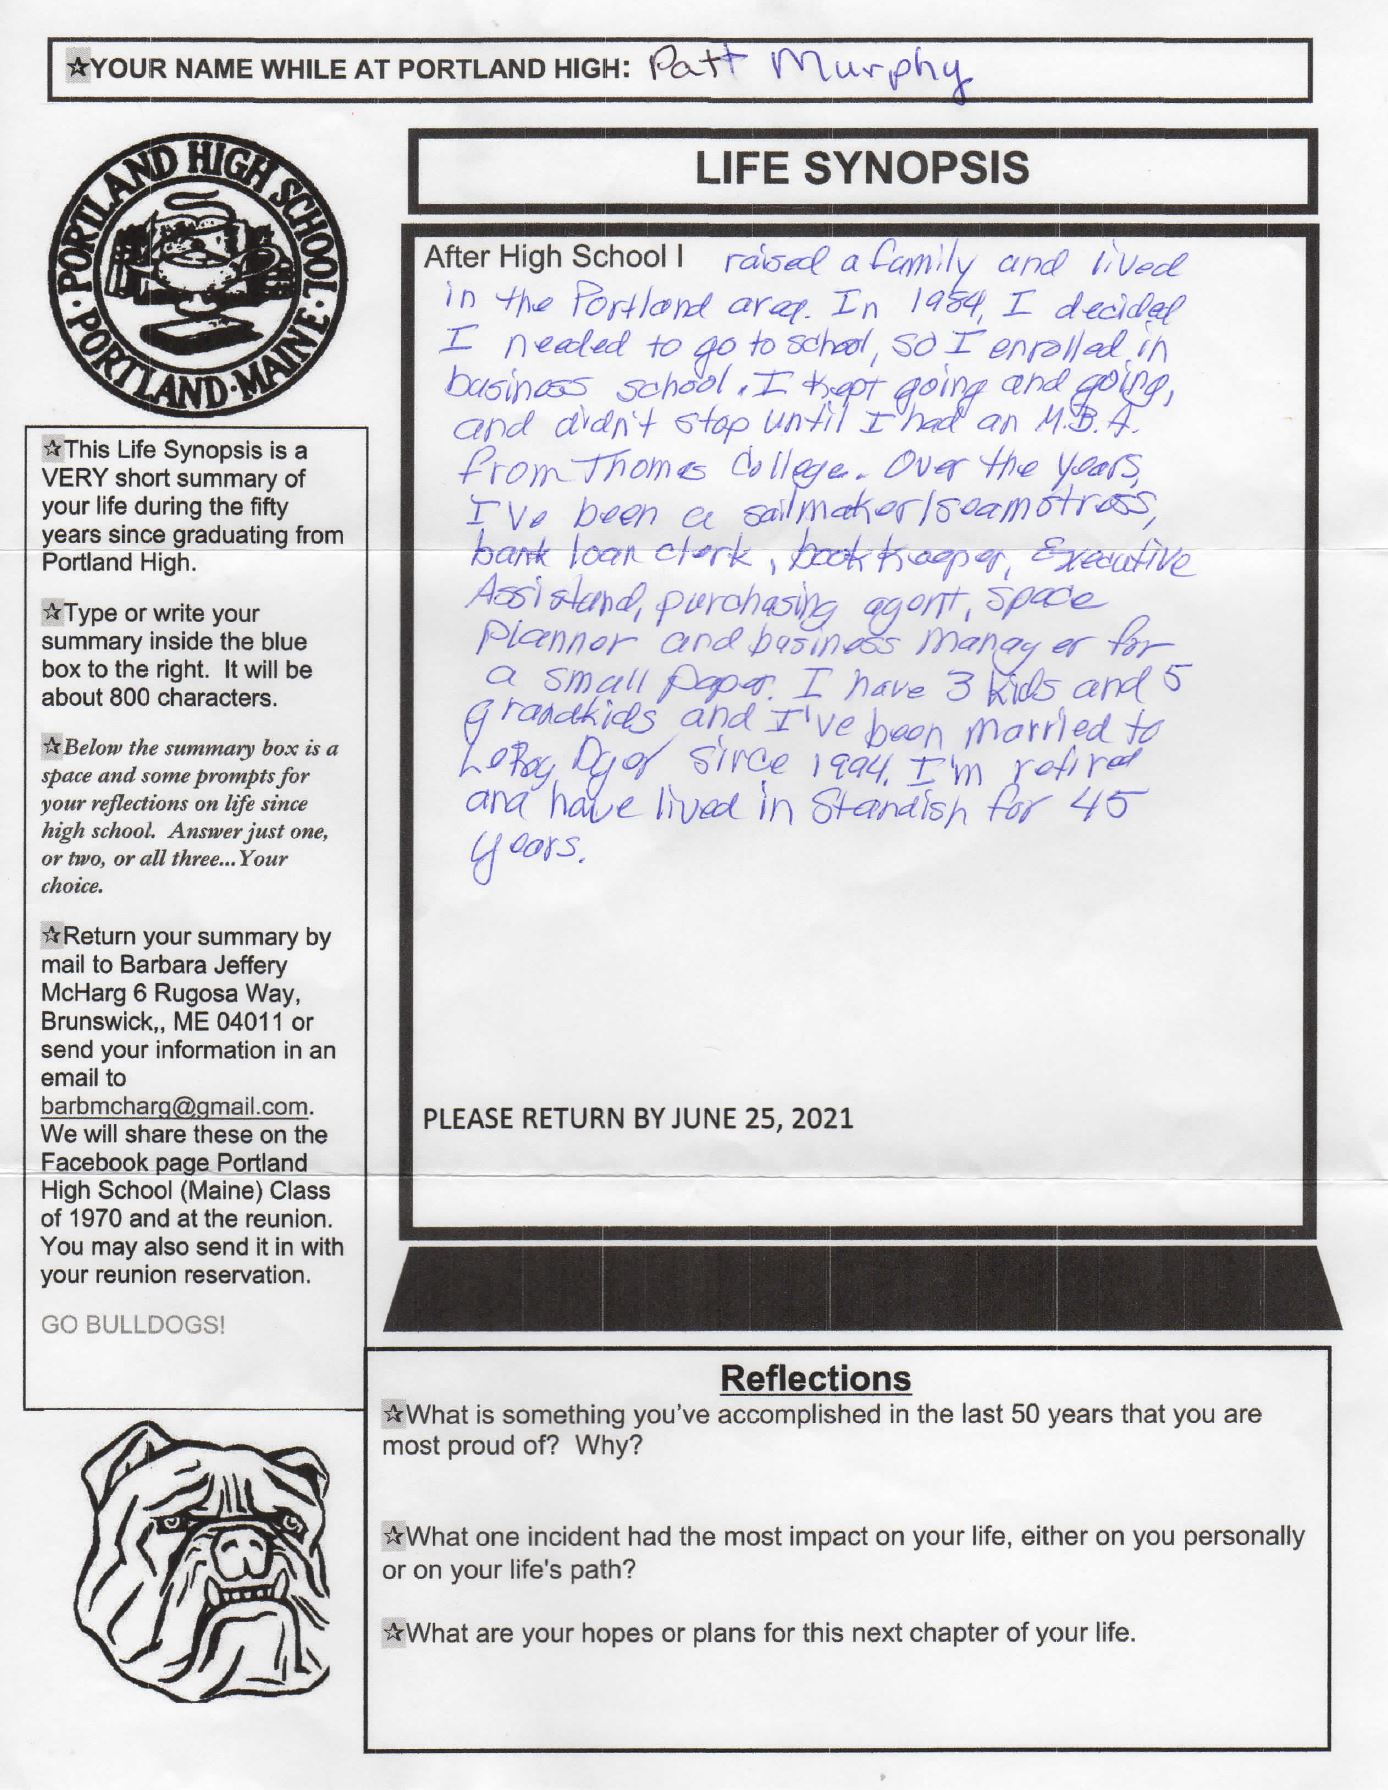 ☆YOUR NAME WHILE AT PORTLAND HIGH: Patt Murphy
PORTLAND HIGH SCHOOL
· PORTLAND · MAINE ·
LIFE SYNOPSIS
After High School I raised a family and lived
in the Portland area. In 1984, I decided
I needed to go to school, so I enrolled in
business school. I kept going and going,
and didn't stop until I had an M.B.A.
from Thomas College. Over the years,
I've been a sailmaker/seamstress,
bank loan clerk, bookkeeper, Executive
Assistand, purchasing agent, space
planner and business manager for
a small paper. I have 3 kids and 5
grandkids and I've been married to
LeRoy Dyer since 1994. I'm retired
and have lived in Standish for 45
years.
PLEASE RETURN BY JUNE 25, 2021
☆This Life Synopsis is a
VERY short summary of
your life during the fifty
years since graduating from
Portland High.
☆Type or write your
summary inside the blue
box to the right. It will be
about 800 characters.
☆Below the summary box is a
space and some prompts for
your reflections on life since
high school. Answer just one,
or two, or all three...Your
choice.
☆Return your summary by
mail to Barbara Jeffery
McHarg 6 Rugosa Way,
Brunswick,, ME 04011 or
send your information in an
email to
barbmcharg@gmail.com.
We will share these on the
Facebook page Portland
High School (Maine) Class
of 1970 and at the reunion.
You may also send it in with
your reunion reservation.
GO BULLDOGS!
Reflections
☆What is something you've accomplished in the last 50 years that you are
most proud of? Why?
☆What one incident had the most impact on your life, either on you personally
or on your life's path?
☆What are your hopes or plans for this next chapter of your life.